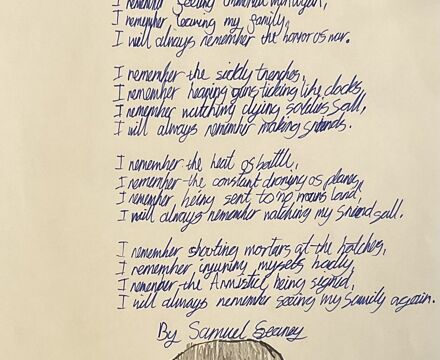 I remember feeling
I remember leaving my family,
I will always remember the horror of war.
I remember the sickly trenches,
I remember hearing guns ticking like clocks,
I remember watching dying soldiers fall,
I will always remember making friends.
I remember the heat of battle,
I remember the constant droning of planes,
I remember being sent to no mans land,
I will always remember watching my friend fall.
I remember shooting mortars at the hatches,
I remember injuring myself badly,
I remember the Armistice being signed,
I will always remember seeing my family again.
By Samuel